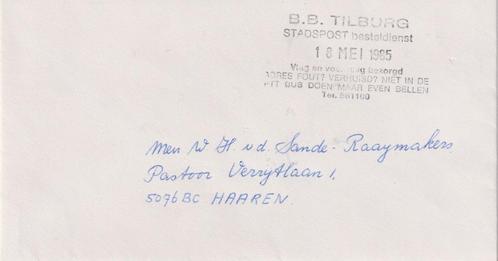 B.B. TILBURG
STADSPOST besteldienst
18 MEI 1985
Vlug en voordelig bezorgd
ADRES FOUT? VERHUISD? NIET IN DE
PTT BUS DOEN MAAR EVEN BELLEN
Tel.
Mevr W H. v.d. Sande - Raaymakers
Pastoor Verrytlaan 1,
5076BC HAAREN.